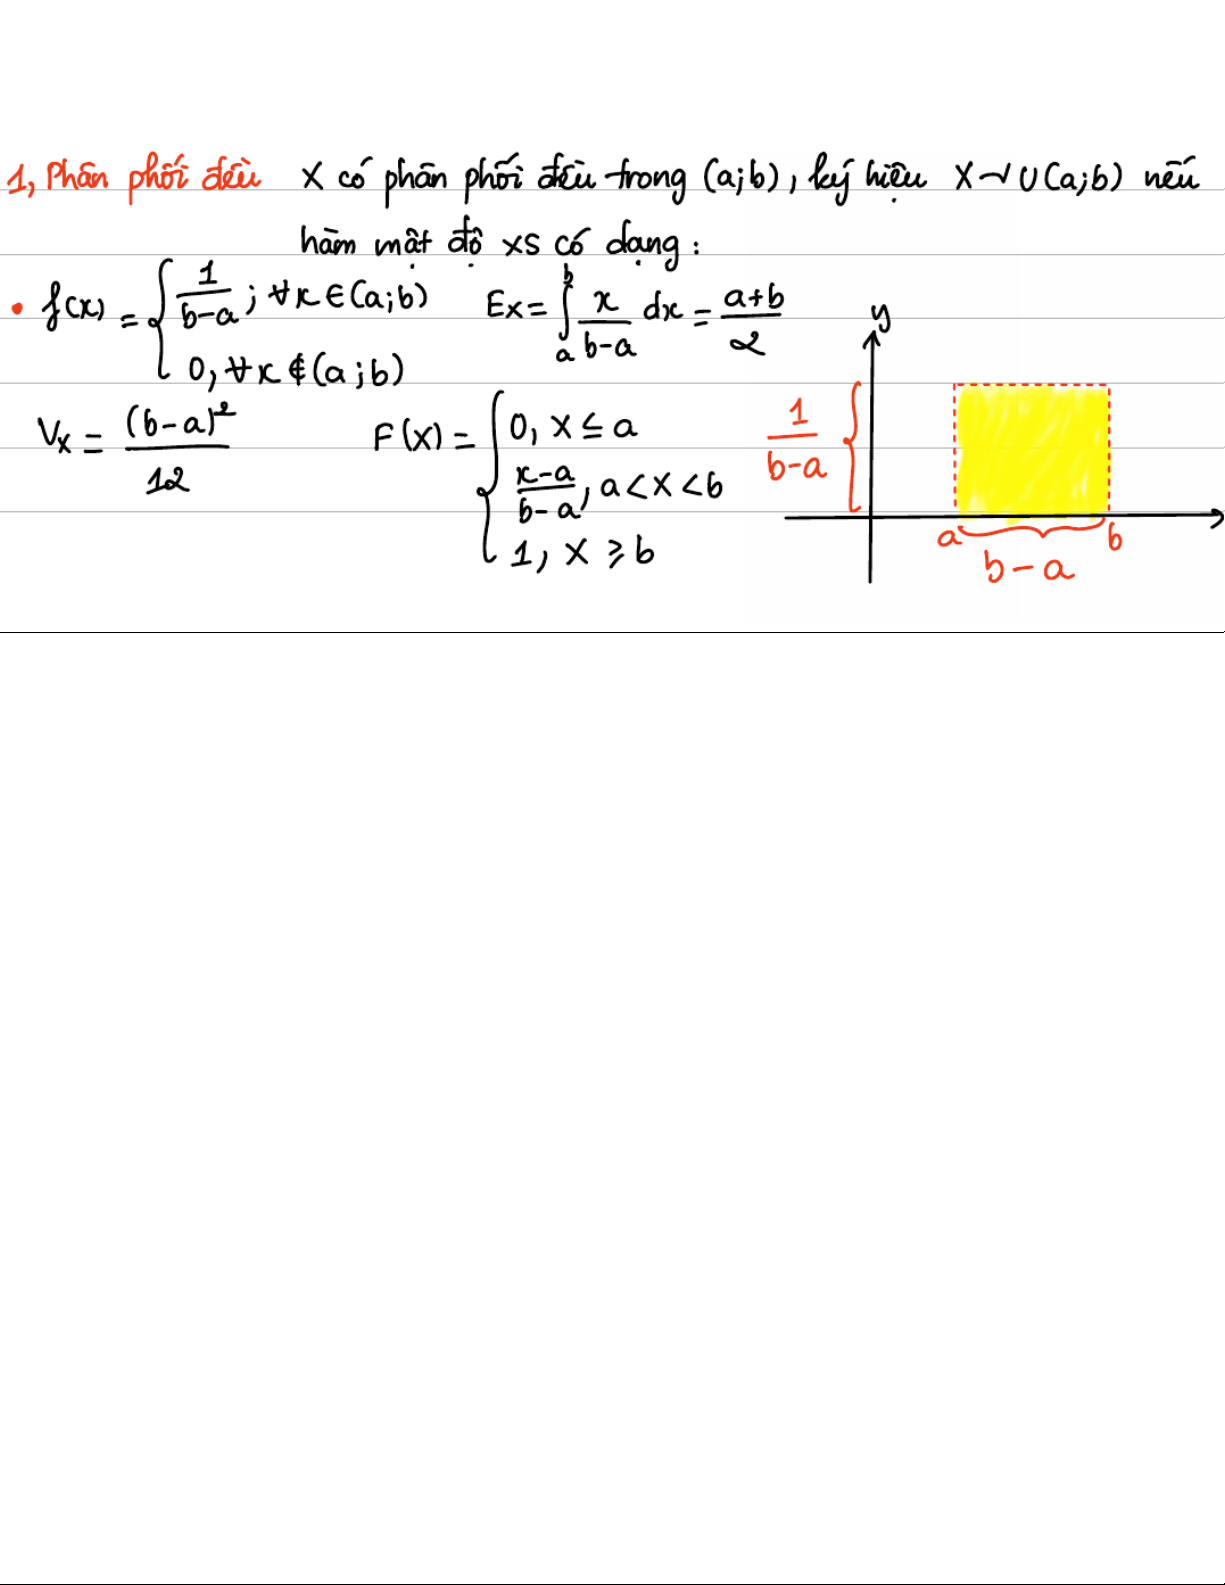 1, Phân phối đều X có phân phối đều trong (a;b), ký hiệu X~U(a;b) nếu
hàm mật độ XS có dạng:
• f(x) = { 1/(b-a) ; ∀x∈(a;b)
0, ∀x∉(a;b)
Ex = ∫_a^b x/(b-a) dx = (a+b)/2
Vx = (b-a)²/12
F(x) = { 0, x ≤ a
(x-a)/(b-a), a<x<b
1, x ≥ b
y
1/(b-a)
a b
b-a